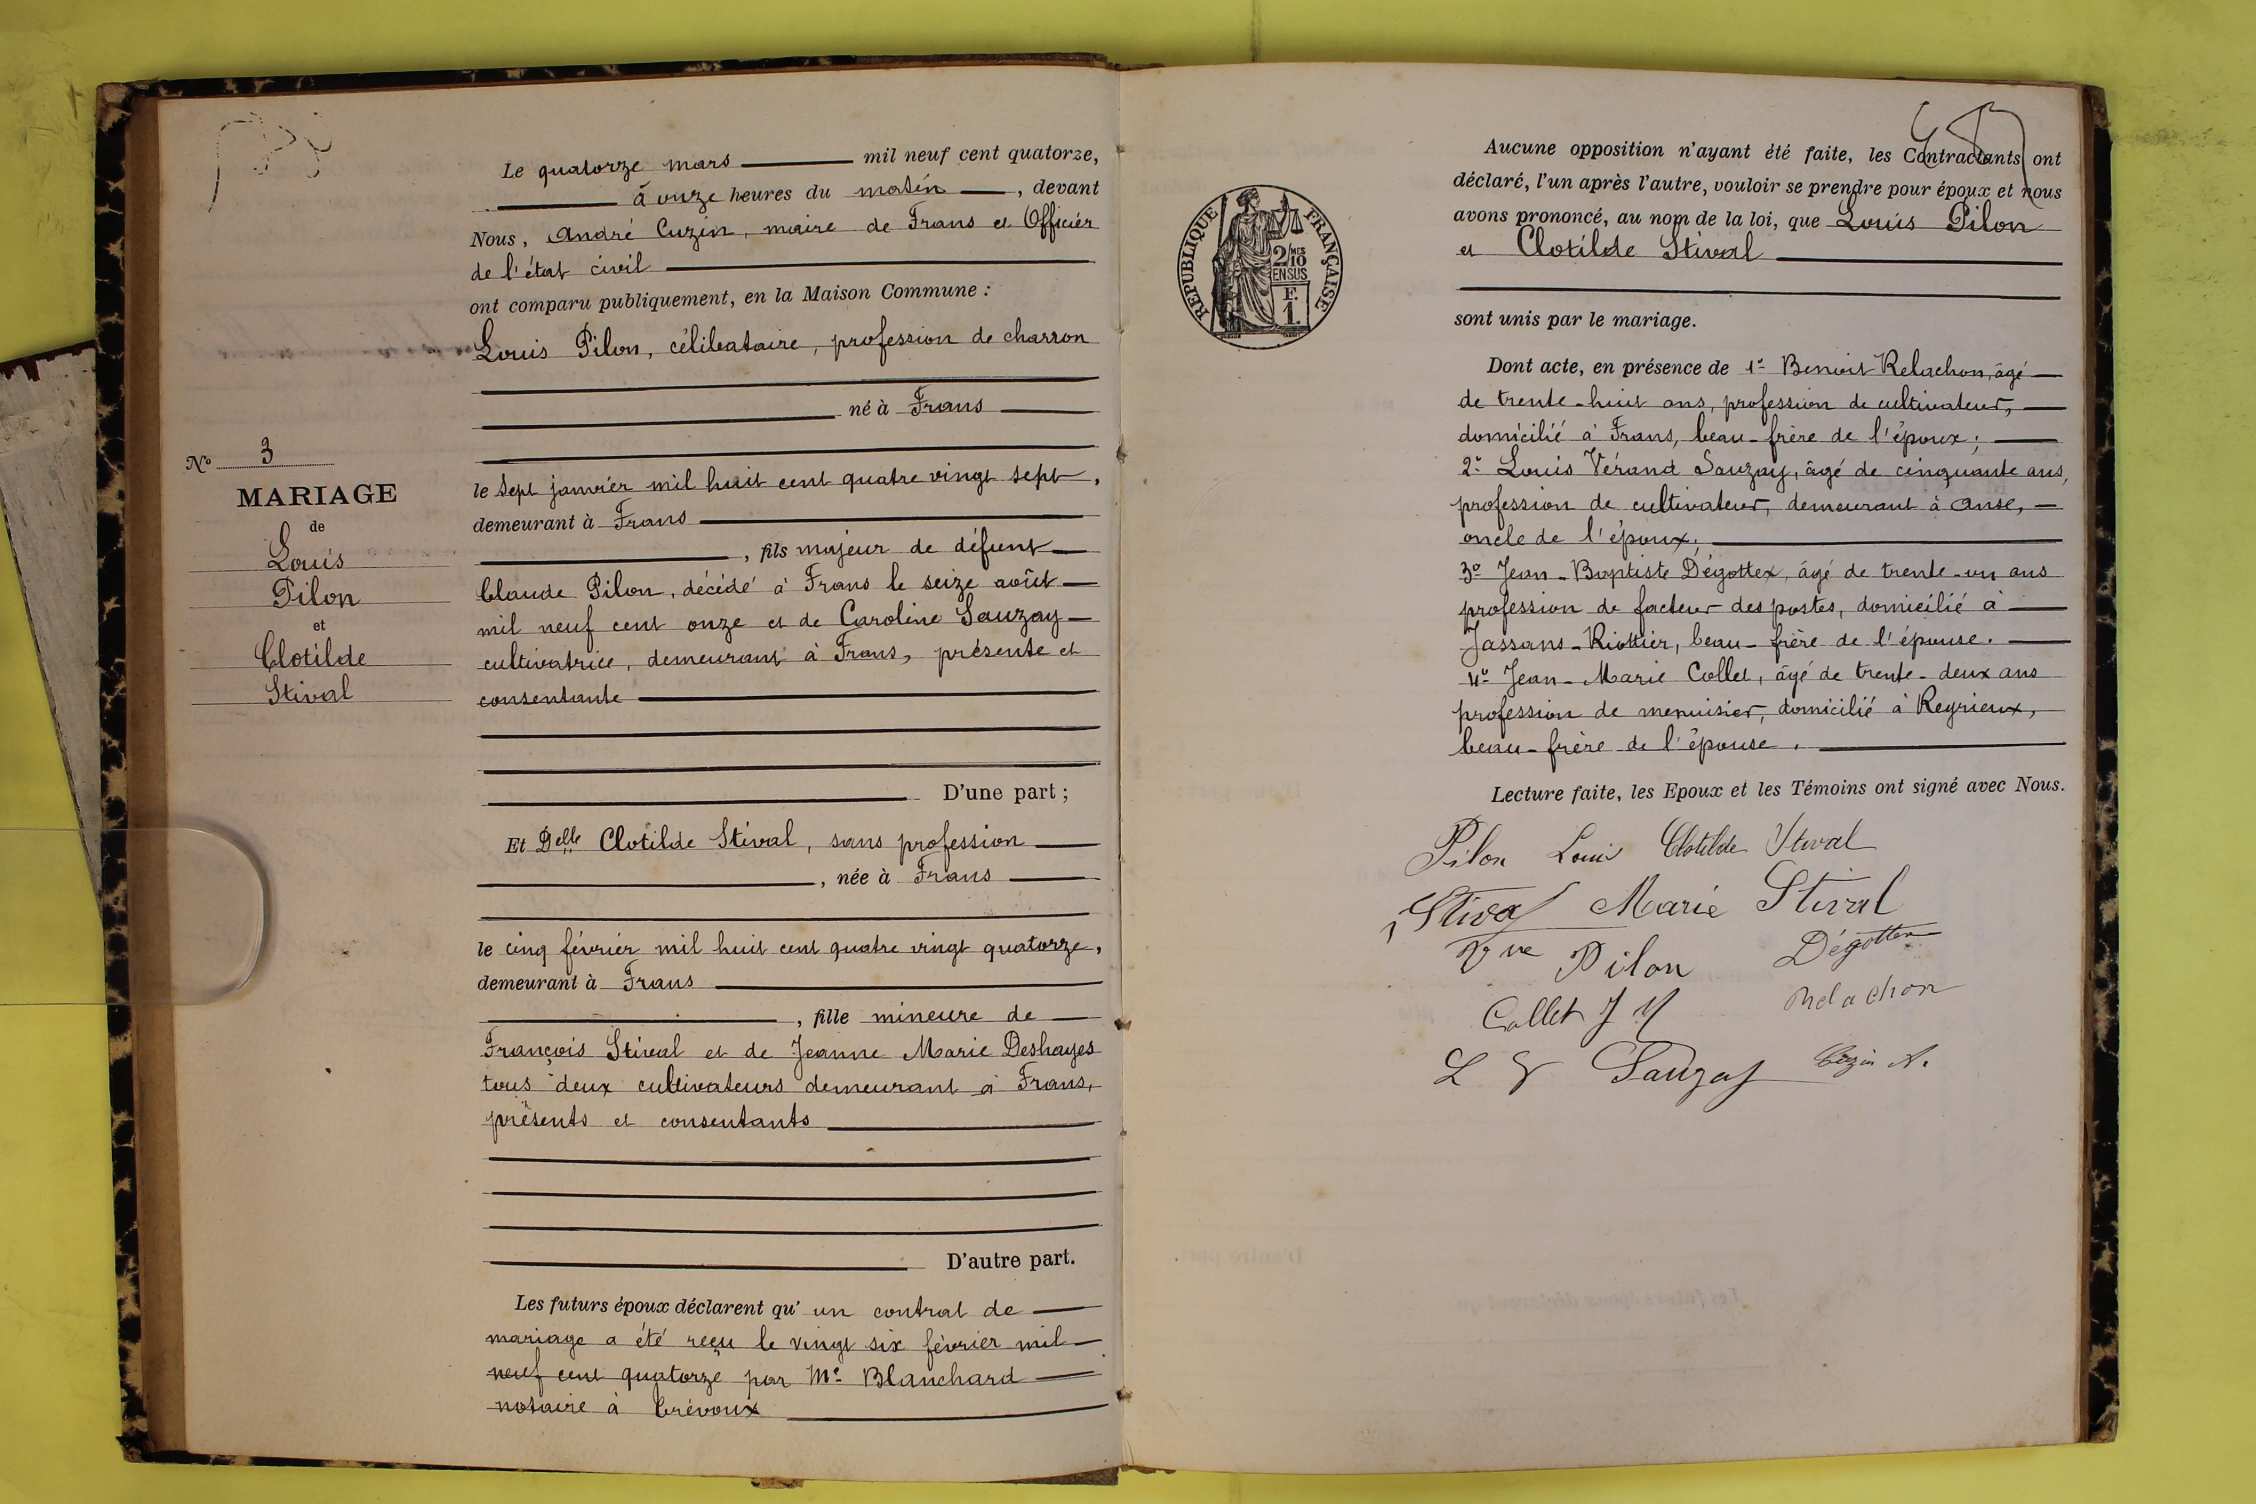 Le quatorze mars mil neuf cent quatorze,
à onze heures du matin, devant
Nous, André Cuzin, maire de Frans et Officier
de l'état civil
ont comparu publiquement, en la Maison Commune :
Louis Pilon, célibataire, profession de charron
né à Frans
le sept janvier mil huit cent quatre vingt sept,
demeurant à Frans
, fils majeur de défunt
Claude Pilon, décédé à Frans le seize août
mil neuf cent onze et de Caroline Sauzay
cultivatrice, demeurant à Frans, présente et
consentante
D'une part ;
Et Delle Clotilde Stival, sans profession
, née à Frans
le cinq février mil huit cent quatre vingt quatorze,
demeurant à Frans
, fille mineure de
François Stival et de Jeanne Marie Deshayes
tous deux cultivateurs demeurant à Frans,
présents et consentants
D'autre part.
Les futurs époux déclarent qu' un contrat de
mariage a été reçu le vingt six février mil
neuf cent quatorze par Me Blanchard
notaire à Trévoux
No 3
MARIAGE
de
Louis
Pilon
et
Clotilde
Stival
REPUBLIQUE FRANÇAISE
2/10 MES
EN SUS
F.
1.
Aucune opposition n'ayant été faite, les Contractants ont
déclaré, l'un après l'autre, vouloir se prendre pour époux et nous
avons prononcé, au nom de la loi, que Louis Pilon
et Clotilde Stival
sont unis par le mariage.
Dont acte, en présence de 1º Benoit Relachon, âgé
de trente-huit ans, profession de cultivateur,
domicilié à Frans, beau-frère de l'époux;
2º Louis Vérand Sauzay, âgé de cinquante ans,
profession de cultivateur, demeurant à Anse,
oncle de l'époux;
3º Jean-Baptiste Dégottex, âgé de trente-un ans
profession de facteur des postes, domicilié à
Jassans-Riottier, beau-frère de l'épouse.
4º Jean-Marie Collet, âgé de trente-deux ans
profession de menuisier, domicilié à Reyrieux,
beau-frère de l'épouse.
Lecture faite, les Epoux et les Témoins ont signé avec Nous.
Pilon Louis Clotilde Stival
Stival Marie Stival
Vve Pilon Dégottex
Collet J M Relachon
L V Sauzay Cuzin A.